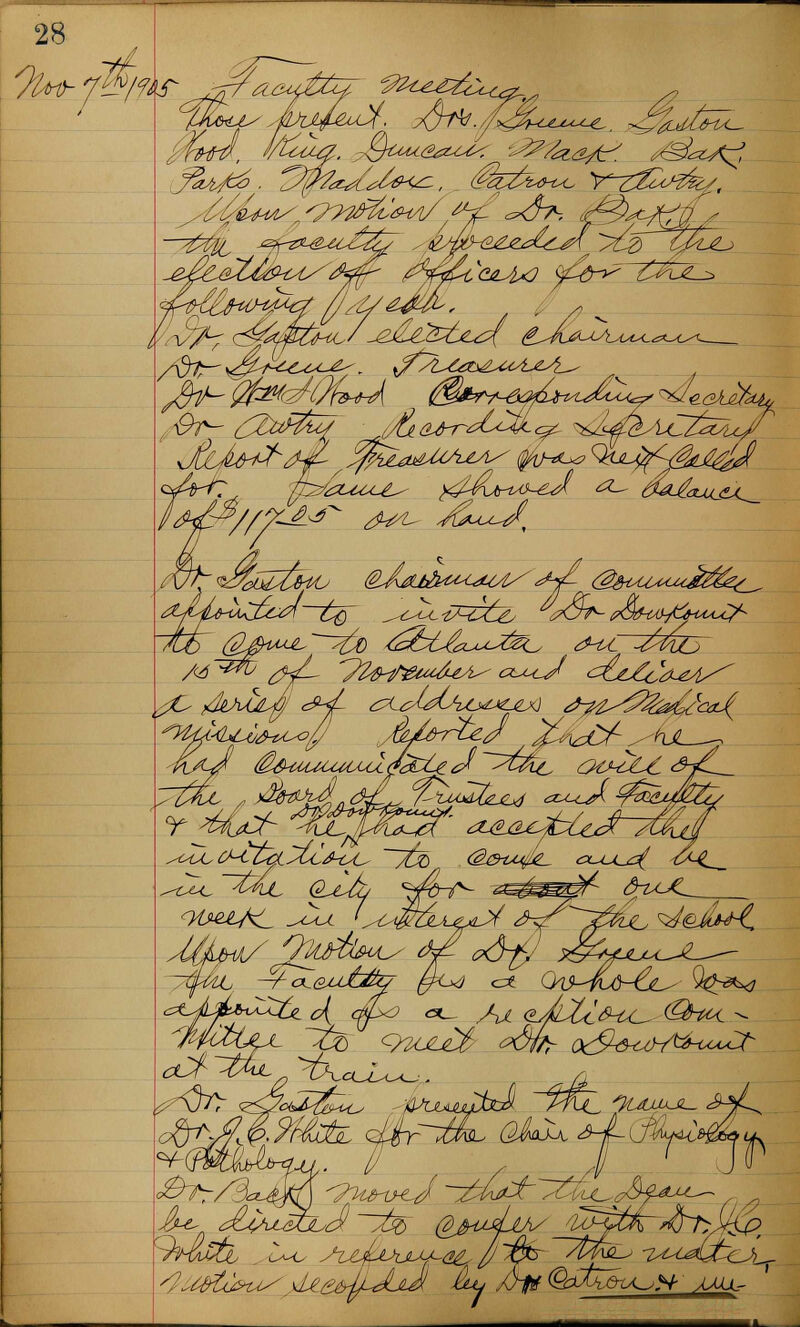 28
Nov 7th 1905 Faculty Meeting.
Those present. Drs. Greene. Gaston
Wood, King. Duncan. Mack. Bak.
Parks. Maddox. Catron & Awtry.
Upon motion of Dr. Bak.
the faculty proceeded to the
election of officers for the
following year.
Dr. Gaston elected chairman
Dr Greene. Treasurer
Dr Wm S Wood Corresponding Secretary
Dr Awtry Recording Secretary
Report of Treasurer was next Called
for. Same showed a balance
of $117 05 on hand.
Dr. Gaston chairman of Committee
appointed to invite Dr Dowkonnt
to come to Atlanta on the
15th of November and deliver
a series of addresses on Medical
missions, Reported that he
had Communicated the will of
the Board of Trustees and Faculty
Dr Dowkonnt.
& that he had accepted the
invitation to come and be
in the city for about one
week in interest of the School.
Upon Motion of Dr. Greene
the Faculty as a whole was
appointed as a reception Com-
mittee to meet Dr. Dowkonnt
at the train.
Dr. Gaston presented the name of
Dr. J. C. White for the Chair of Physiology
& Pathology.
Dr. Back moved that the Dean
be directed to confer with Dr. J.C.
White in reference to the mater,
motion seconded by Dr Catron. & un-